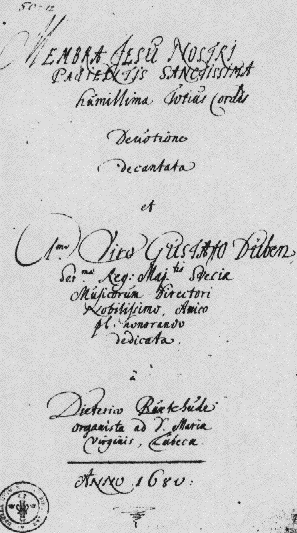 Membra Jesu Nostri
Patientis Sanctissima
humillima Totius Cordis
Devotione
decantata
et
Viro Gustavo Düben
Reg: Maj:tis Svecia
Musicorum Directori
Nobilissimo, Amico
pl. honorando
dedicata.
à
Dieterico Buxtehude
organista ad S. Maria
Virginis, Lubeca
Anno 1680: